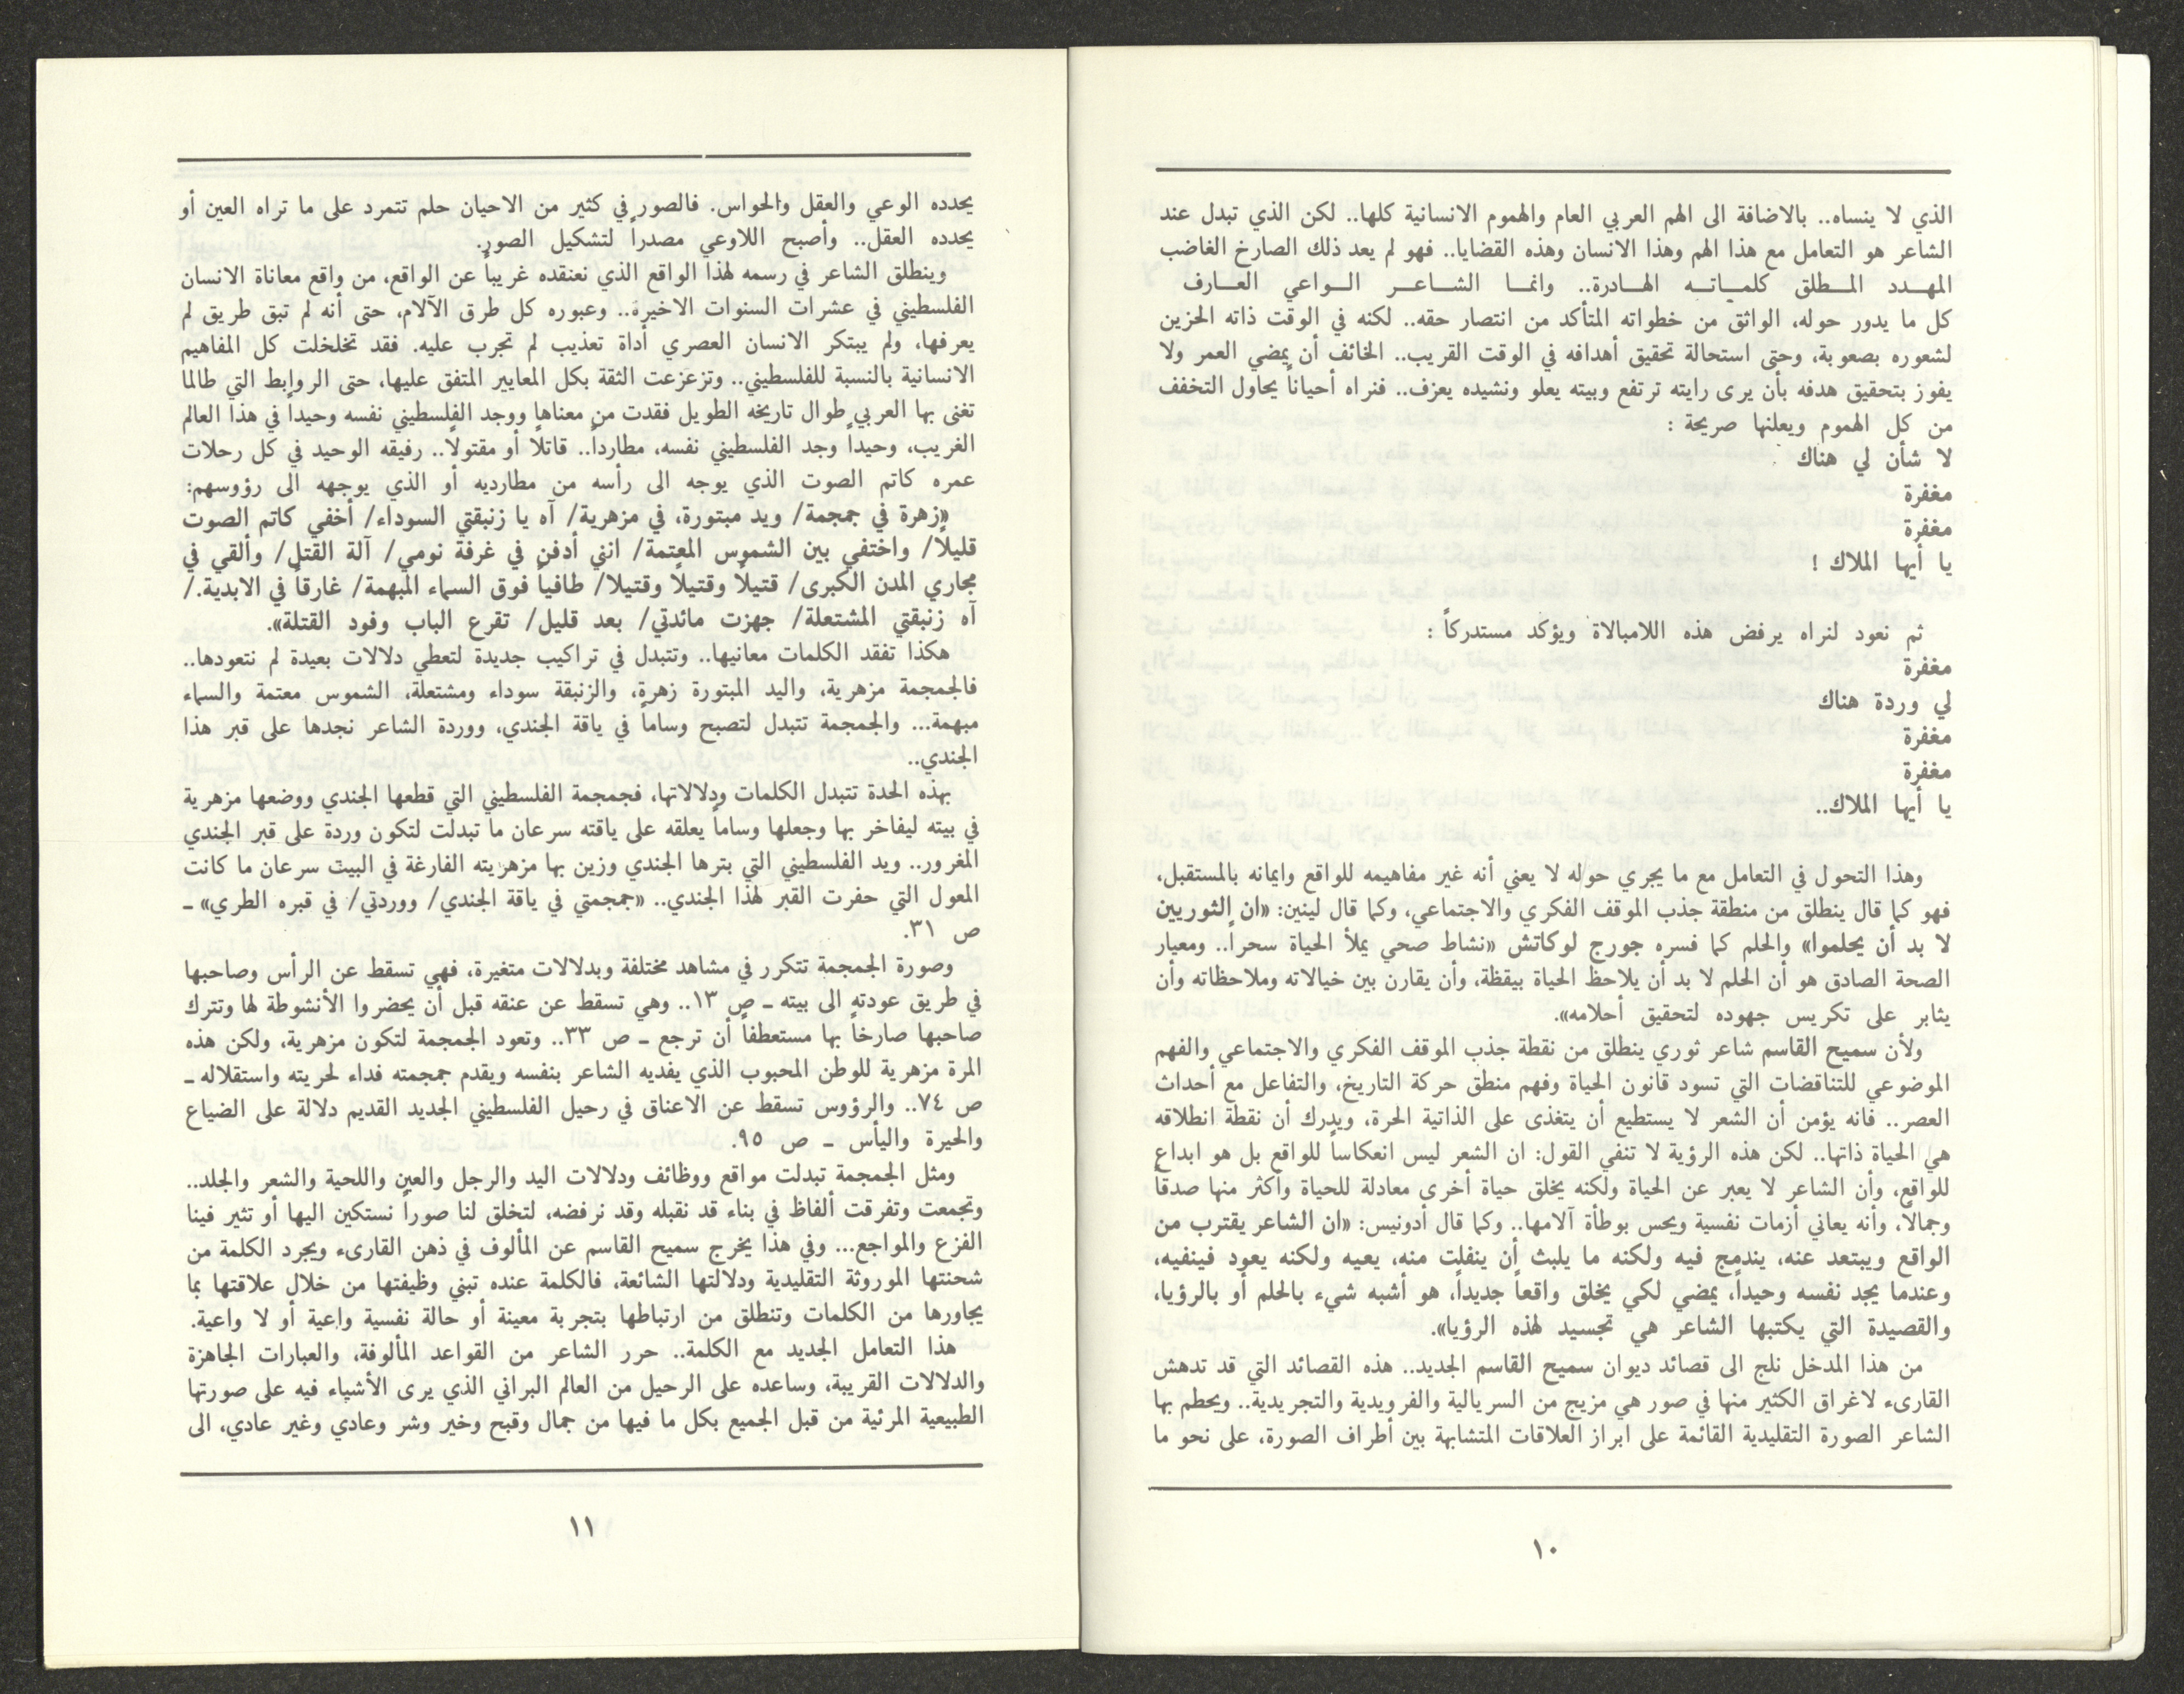 الذي لا ينساه.. بالاضافة الى الهم العربي العام والهموم الانسانية كلها.. لكن الذي تبدل عند
الشاعر هو التعامل مع هذا الهم وهذا الانسان وهذه القضايا.. فهو لم يعد ذلك الصارخ الغاضب
المهدد المطلق كلماته الهادرة.. وانما الشاعر الواعي العارف
كل ما يدور حوله، الواثق من خطواته المتأكد من انتصار حقه.. لكنه في الوقت ذاته الحزين
لشعوره بصعوبة، وحتى استحالة تحقيق أهدافه في الوقت القريب.. الخائف أن يمضي العمر ولا
يفوز بتحقيق هدفه بأن يرى رايته ترتفع وبيته يعلو ونشيده يعزف.. فنراه أحياناً يحاول التخفف
من كل الهموم ويعلنها صريحة :
لا شأن لي هناك
مغفرة
مغفرة
يا أيها الملاك !
ثم نعود لنراه يرفض هذه اللامبالاة ويؤكد مستدركاً :
مغفرة
لي وردة هناك
مغفرة
مغفرة
يا أيها الملاك..
وهذا التحول في التعامل مع ما يجري حوله لا يعني أنه غير مفاهيمه للواقع وايمانه بالمستقبل،
فهو كما قال ينطلق من منطقة جذب الموقف الفكري والاجتماعي، وكما قال لينين: «ان الثوريين
لا بد أن يحلموا» والحلم كما فسره جورج لوكاتش «نشاط صحي يملأ الحياة سحراً.. ومعيار
الصحة الصادق هو أن الحلم لا بد أن يلاحظ الحياة بيقظة، وأن يقارن بين خيالاته وملاحظاته وأن
يثابر على تكريس جهوده لتحقيق أحلامه».
ولأن سميح القاسم شاعر ثوري ينطلق من نقطة جذب الموقف الفكري والاجتماعي والفهم
الموضوعي للتناقضات التي تسود قانون الحياة وفهم منطق حركة التاريخ، والتفاعل مع أحداث
العصر.. فانه يؤمن أن الشعر لا يستطيع أن يتغذى على الذاتية الحرة، ويدرك أن نقطة انطلاقه
هي الحياة ذاتها.. لكن هذه الرؤية لا تنفي القول: ان الشعر ليس انعكاساً للواقع بل هو ابداع
للواقع، وأن الشاعر لا يعبر عن الحياة ولكنه يخلق حياة أخرى معادلة للحياة وأكثر منها صدقاً
وجمالاً، وأنه يعاني أزمات نفسية ويحس بوطأة آلامها.. وكما قال أدونيس: «ان الشاعر يقترب من
الواقع ويبتعد عنه، يندمج فيه ولكنه ما يلبث أن ينفلت منه، يعيه ولكنه يعود فينفيه،
وعندما يجد نفسه وحيداً، يمضي لكي يخلق واقعاً جديداً، هو أشبه شيء بالحلم أو بالرؤيا،
والقصيدة التي يكتبها الشاعر هي تجسيد لهذه الرؤيا».
من هذا المدخل نلج الى قصائد ديوان سميح القاسم الجديد.. هذه القصائد التي قد تدهش
القارىء لاغراق الكثير منها في صور هي مزيج من السريالية والفرويدية والتجريدية.. ويحطم بها
الشاعر الصورة التقليدية القائمة على ابراز العلاقات المتشابهة بين أطراف الصورة، على نحو ما
١٠
يحدده الوعي والعقل والحواس. فالصور في كثير من الاحيان حلم تتمرد على ما تراه العين أو
يحدده العقل.. وأصبح اللاوعي مصدراً لتشكيل الصور.
وينطلق الشاعر في رسمه لهذا الواقع الذي نعتقده غريباً عن الواقع، من واقع معاناة الانسان
الفلسطيني في عشرات السنوات الاخيرة.. وعبوره كل طرق الآلام، حتى أنه لم تبق طريق لم
يعرفها، ولم يبتكر الانسان العصري أداة تعذيب لم تجرب عليه. فقد تخلخلت كل المفاهيم
الانسانية بالنسبة للفلسطيني.. وتزعزعت الثقة بكل المعايير المتفق عليها، حتى الروابط التي طالما
تغنى بها العربي طوال تاريخه الطويل فقدت من معناها ووجد الفلسطيني نفسه وحيداً في هذا العالم
الغريب، وحيداً وجد الفلسطيني نفسه، مطارداً.. قاتلاً أو مقتولاً.. رفيقه الوحيد في كل رحلات
عمره كاتم الصوت الذي يوجه الى رأسه من مطارديه أو الذي يوجهه الى رؤوسهم:
«زهرة في جمجمة/ ويد مبتورة، في مزهرية/ آه يا زنبقتي السوداء/ أخفي كاتم الصوت
قليلاً/ واختفي بين الشموس المعتمة/ انني أدفن في غرفة نومي/ آلة القتل/ وألقي في
مجاري المدن الكبرى/ قتيلاً وقتيلاً وقتيلا/ طافياً فوق السماء المبهمة/ غارقاً في الابدية./
آه زنبقتي المشتعلة/ جهزت مائدتي/ بعد قليل/ تقرع الباب وفود القتلة».
هكذا تفقد الكلمات معانيها.. وتتبدل في تراكيب جديدة لتعطي دلالات بعيدة لم نتعودها..
فالجمجمة مزهرية، واليد المبتورة زهرة، والزنبقة سوداء ومشتعلة، الشموس معتمة والسماء
مبهمة... والجمجمة تتبدل لتصبح وساماً في ياقة الجندي، ووردة الشاعر نجدها على قبر هذا
الجندي..
بهذه الحدة تتبدل الكلمات ودلالاتها، فجمجمة الفلسطيني التي قطعها الجندي ووضعها مزهرية
في بيته ليفاخر بها وجعلها وساماً يعلقه على ياقته سرعان ما تبدلت لتكون وردة على قبر الجندي
المغرور.. ويد الفلسطيني التي بترها الجندي وزين بها مزهريته الفارغة في البيت سرعان ما كانت
المعول التي حفرت القبر لهذا الجندي.. «جمجمتي في ياقة الجندي/ ووردتي/ في قبره الطري» ـ
ص ٣١.
وصورة الجمجمة تتكرر في مشاهد مختلفة وبدلالات متغيرة، فهي تسقط عن الرأس وصاحبها
في طريق عودته الى بيته ـ ص ١٣.. وهي تسقط عن عنقه قبل أن يحضروا الأنشوطة لها وتترك
صاحبها صارخاً بها مستعطفاً أن ترجع ـ ص ٣٣.. وتعود الجمجمة لتكون مزهرية، ولكن هذه
المرة مزهرية للوطن المحبوب الذي يفديه الشاعر بنفسه ويقدم جمجمته فداء لحريته واستقلاله ـ
ص ٧٤.. والرؤوس تسقط عن الاعناق في رحيل الفلسطيني الجديد القديم دلالة على الضياع
والحيرة واليأس ـ ص ٩٥.
ومثل الجمجمة تبدلت مواقع ووظائف ودلالات اليد والرجل والعين واللحية والشعر والجلد..
وتجمعت وتفرقت ألفاظ في بناء قد نقبله وقد نرفضه، لتخلق لنا صوراً نستكين اليها أو تثير فينا
الفزع والمواجع... وفي هذا يخرج سميح القاسم عن المألوف في ذهن القارىء ويجرد الكلمة من
شحنتها الموروثة التقليدية ودلالتها الشائعة، فالكلمة عنده تبني وظيفتها من خلال علاقتها بما
يجاورها من الكلمات وتنطلق من ارتباطها بتجربة معينة أو حالة نفسية واعية أو لا واعية.
هذا التعامل الجديد مع الكلمة.. حرر الشاعر من القواعد المألوفة، والعبارات الجاهزة
والدلالات القريبة، وساعده على الرحيل من العالم البراني الذي يرى الأشياء فيه على صورتها
الطبيعية المرئية من قبل الجميع بكل ما فيها من جمال وقبح وخير وشر وعادي وغير عادي، الى
١١